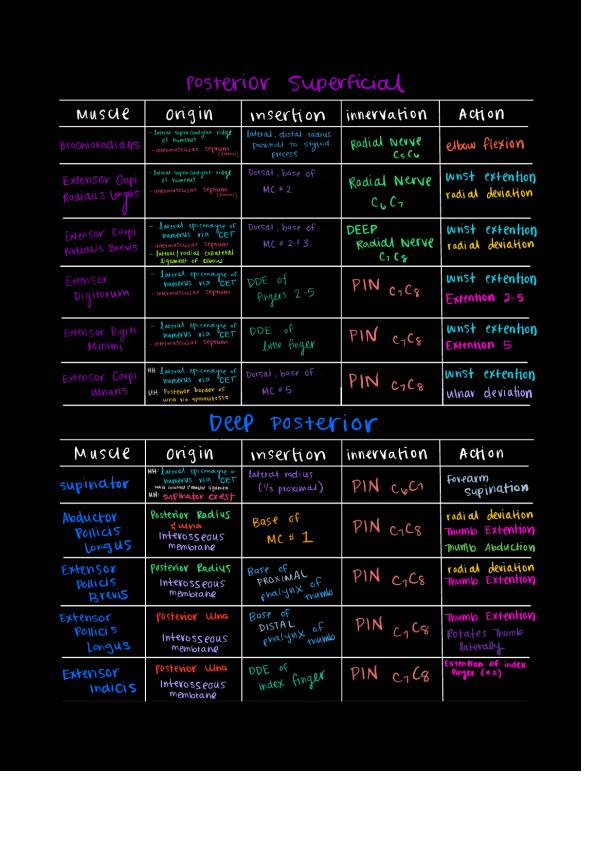 Posterior Superficial
Muscle Origin Insertion innervation Action
Brachioradialis
- lateral supracondylar ridge
of humerus
- intermuscular septum
(lateral)
lateral, distal radius
proximal to styloid
process
Radial Nerve
C5 C6
elbow flexion
Extensor Carpi
Radialis Longus
- lateral supracondylar ridge
of humerus
- intermuscular septum
(lateral)
Dorsal, base of
MC #2
Radial Nerve
C6 C7
Wrist extention
radial deviation
Extensor Carpi
Radialis Brevis
- lateral epicondyle of
humerus via CET
- intermuscular septum
- lateral/radial collateral
ligament of elbow
Dorsal, base of
MC #2+3
DEEP
Radial Nerve
C7 C8
Wrist extention
radial deviation
Extensor
Digitorum
- lateral epicondyle of
humerus via CET
- intermuscular septum
DDE of
fingers 2-5
PIN C7C8
Wrist extention
Extention 2-5
Extensor Digiti
Minimi
- lateral epicondyle of
humerus via CET
- intermuscular septum
DDE of
little finger
PIN C7C8
Wrist extention
Extention 5
Extensor Carpi
Ulnaris
HH: lateral epicondyle of
humerus via CET
UH: Posterior border of
ulna via aponeurosis
Dorsal, base of
MC #5
PIN C7C8
Wrist extention
ulnar deviation
Deep Posterior
Muscle Origin Insertion innervation Action
supinator
HH: lateral epicondyle of
humerus via CET
UH: supinator crest
lateral radius
(1/3 proximal)
PIN C6C7
Forearm
Supination
Abductor
Pollicis
Longus
Posterior Radius
& Ulna
Interosseous
membrane
Base of
MC # 1
PIN C7C8
radial deviation
Thumb Extention
Thumb Abduction
Extensor
Pollicis
Brevis
Posterior Radius
Interosseous
membrane
Base of
PROXIMAL
phalynx of
thumb
PIN C7C8
radial deviation
Thumb Extention
Extensor
Pollicis
Longus
Posterior Ulna
Interosseous
membrane
Base of
DISTAL
phalynx of
thumb
PIN C7C8
Thumb Extention
Rotates Thumb
laterally
Extensor
Indicis
Posterior Ulna
Interosseous
membrane
DDE of
index finger
PIN C7C8
Extention of index
finger (#2)